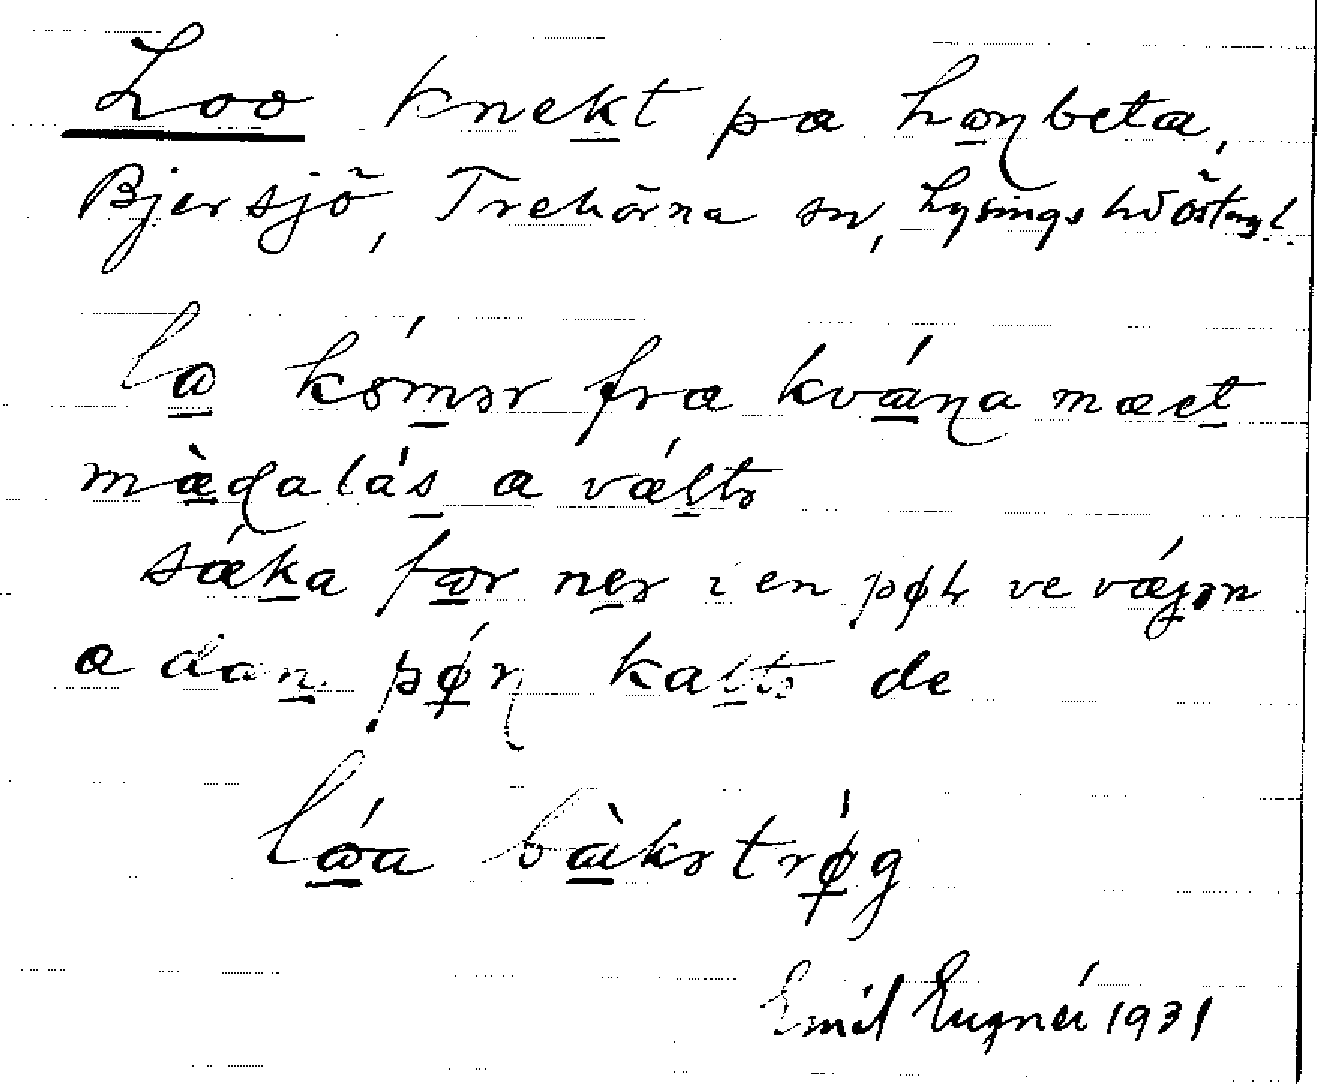 Loo knekt pa hoŋbeta,
Bjersjö, Trehörna sn, Lysings hd Östergl.
la komər fra kvæna mæt
mædalas a væltə
sæka før ner i en pøl ve vægən
a dan pøn kaltə de
låa bækstrøg
Emil Eugnér 1931